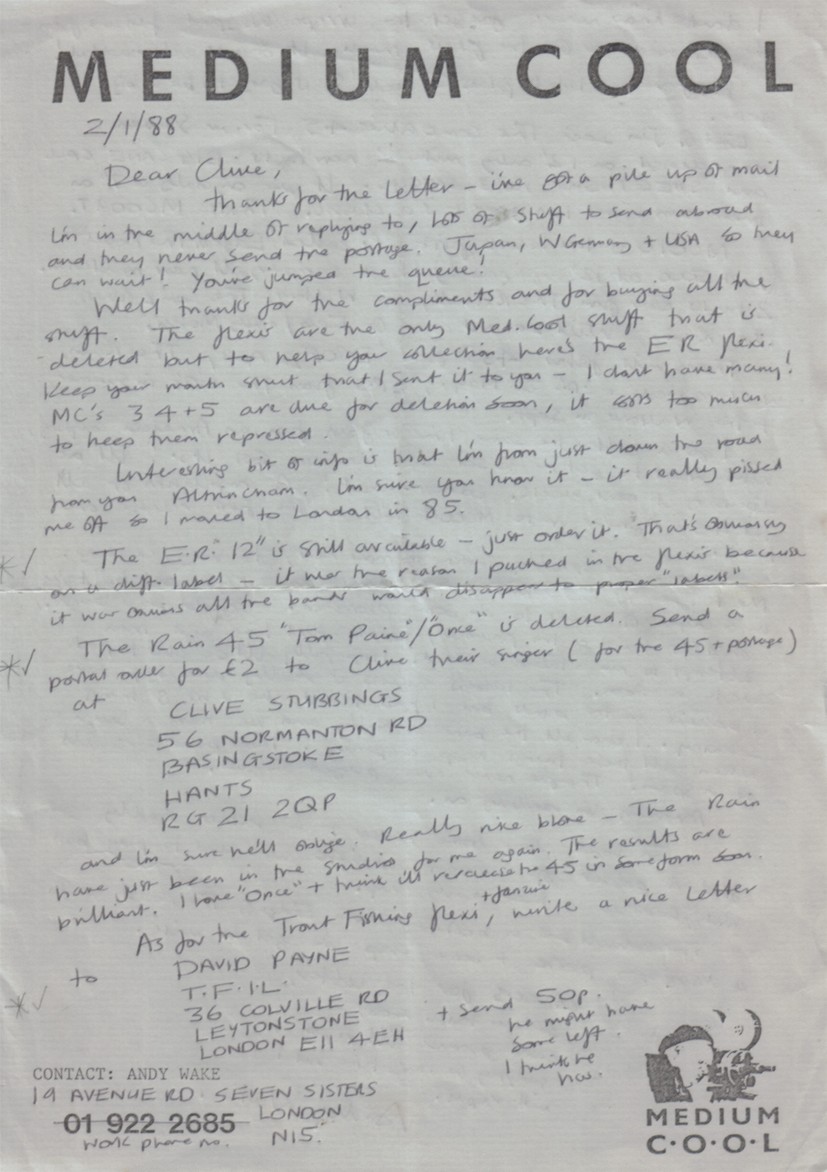 MEDIUM COOL
2/1/88
Dear Clive,
thanks for the letter – i've got a pile up of mail
I'm in the middle of replying to, lots of stuff to send abroad
and they never send the postage. Japan, W Germany + USA so they
can wait! You've jumped the queue!
Well thanks for the compliments and for buying all the
stuff. The flexis are the only Med. Cool stuff that is
deleted but to help your collection here's the ER flexi.
Keep your mouth shut that I sent it to you – I don't have many!
MC's 3 4 + 5 are due for deletion soon, it costs too much
to keep them repressed.
Interesting bit of info is that I'm from just down the road
from you Altrincham. I'm sure you know it – it really pissed
me off so I moved to London in 85.
The E.R. 12" is still available – just order it. That's obviously
on a diff. label – it was the reason I packed in the flexis because
it was obvious all the bands would disappear to proper "labels".
The Rain 45 "Tom Paine"/"Once" is deleted. Send a
postal order for £2 to Clive their singer (for the 45 + postage)
at
CLIVE STUBBINGS
56 NORMANTON RD
BASINGSTOKE
HANTS
RG21 2QP
and I'm sure he'll oblige. Really nice bloke – The Rain
have just been in the studios for me again. The results are
brilliant. I love "Once" + think i'll rerelease the 45 in some form soon.
+ fanzine
As for the Trout Fishing flexi, write a nice letter
to
DAVID PAYNE
T.F.I.L.
36 COLVILLE RD
LEYTONSTONE
LONDON E11 4EH
+ send 50p.
he might have
some left.
I think he
has.
CONTACT: ANDY WAKE
19 AVENUE RD SEVEN SISTERS
01 922 2685 LONDON
work phone no. N15.
MEDIUM
C·O·O·L